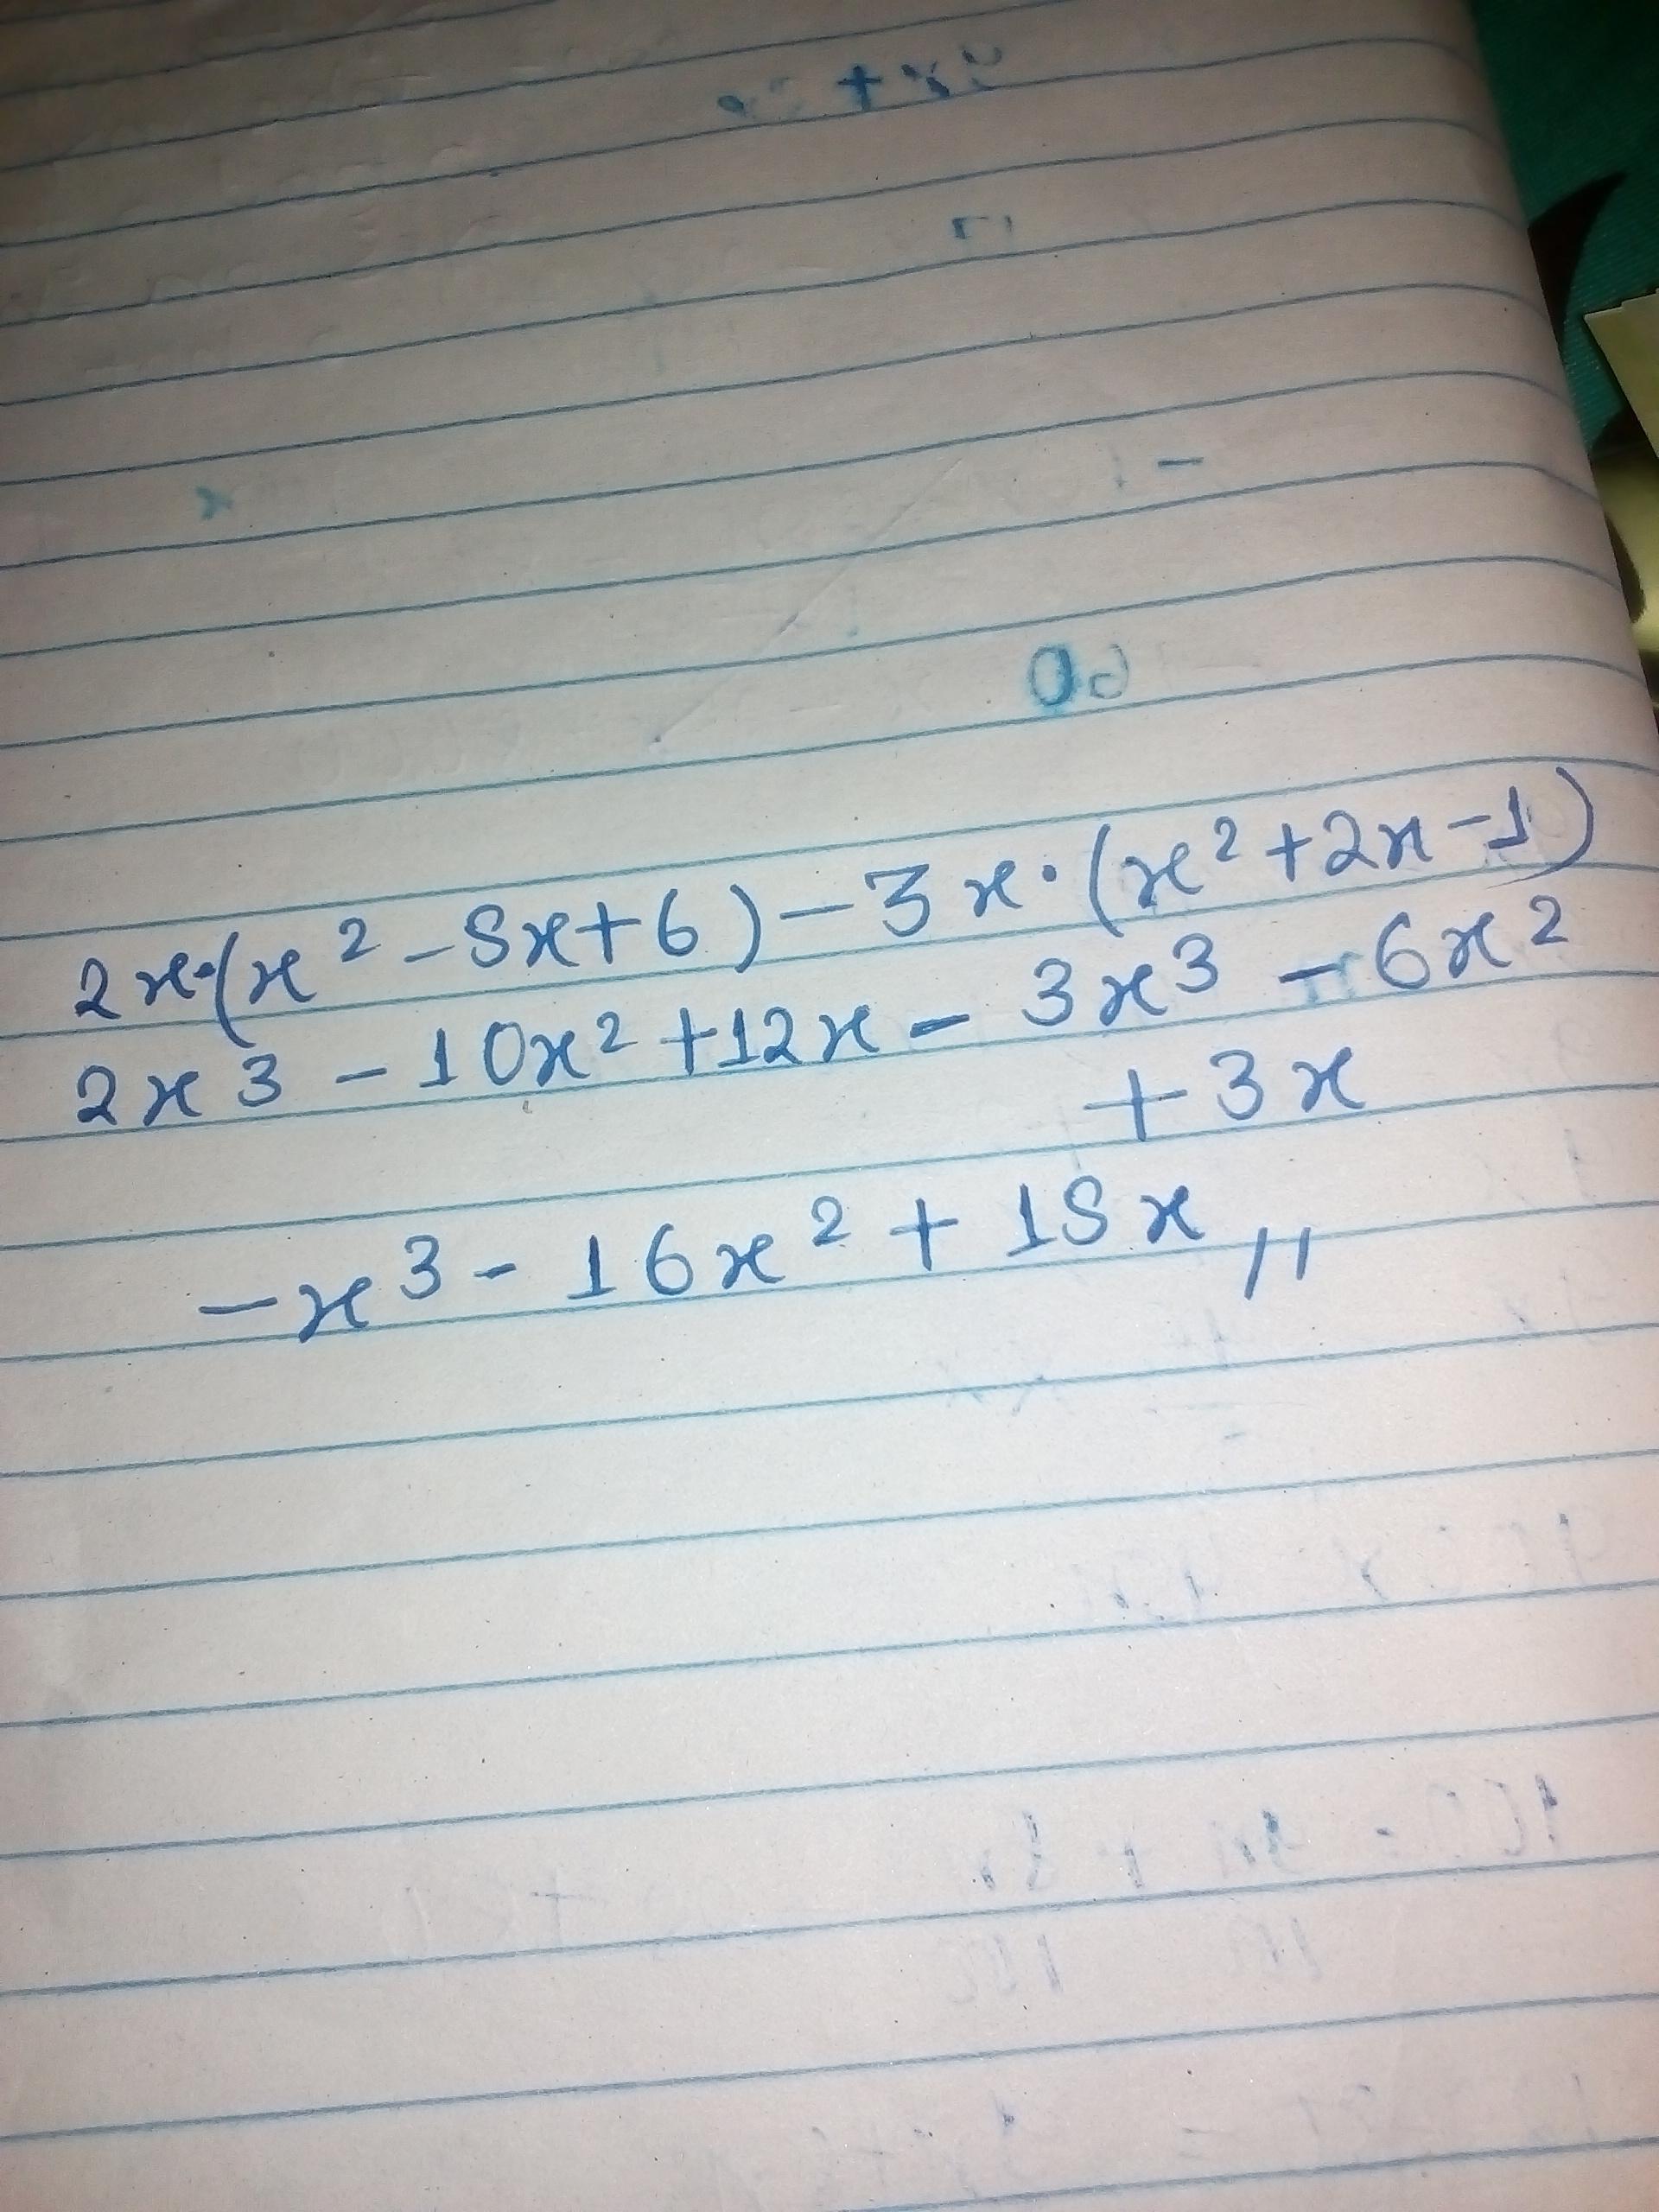 2x·(x² - 5x + 6) - 3x·(x² + 2x - 1)
2x3 - 10x² + 12x - 3x³ - 6x²
+ 3x
-x³ - 16x² + 15x //